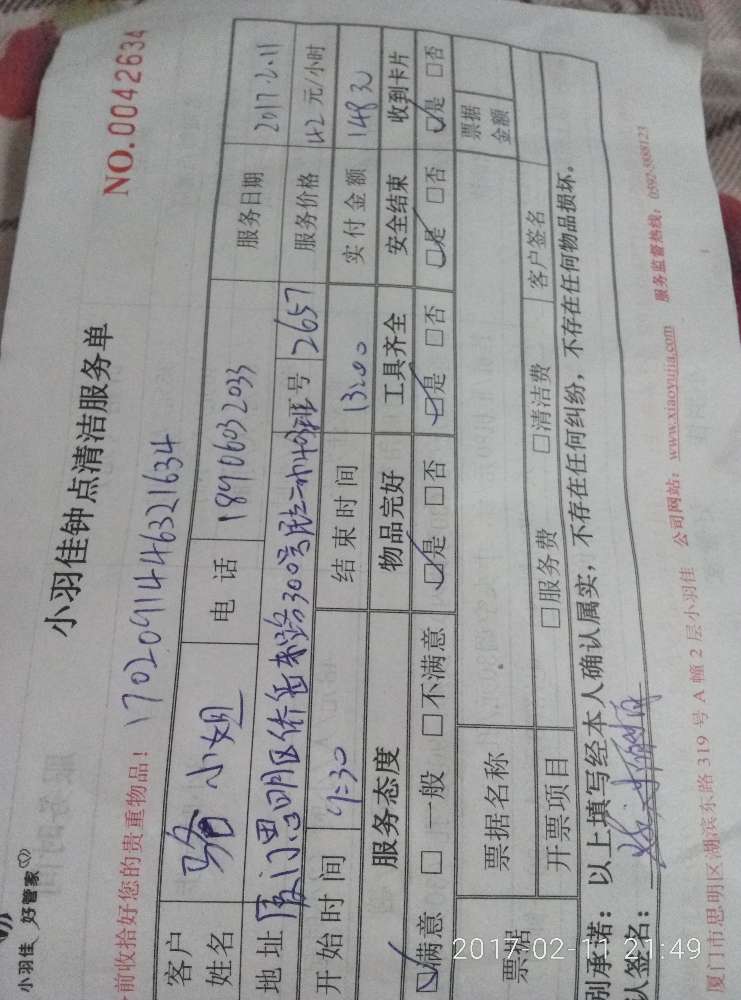 小羽佳 好管家
小羽佳钟点清洁服务单
NO.0042634
前收拾好您的贵重物品！ 17020914463 21634
客户姓名 骆小姐 电话 18906032033 服务日期 2017.2.11
地址 厦门思明区侨岳路300号 号 2657 服务价格 42元/小时
开始时间 9:30 结束时间 13:00 实付金额 148元
服务态度 物品完好 工具齐全 安全结束 收到卡片
☑满意 □一般 □不满意 ☑是 □否 ☑是 □否 ☑是 □否 ☑是 □否
票据 票据名称 票据金额
开票项目 □服务费 □清洁费 客户签名
别承诺：以上填写经本人确认属实，不存在任何纠纷，不存在任何物品损坏。
认签名：
厦门市思明区湖滨东路319号A幢2层小羽佳 公司网站：www.xiaoyujia.com 服务监督热线：0592-8888123
2017-02-11 21:49